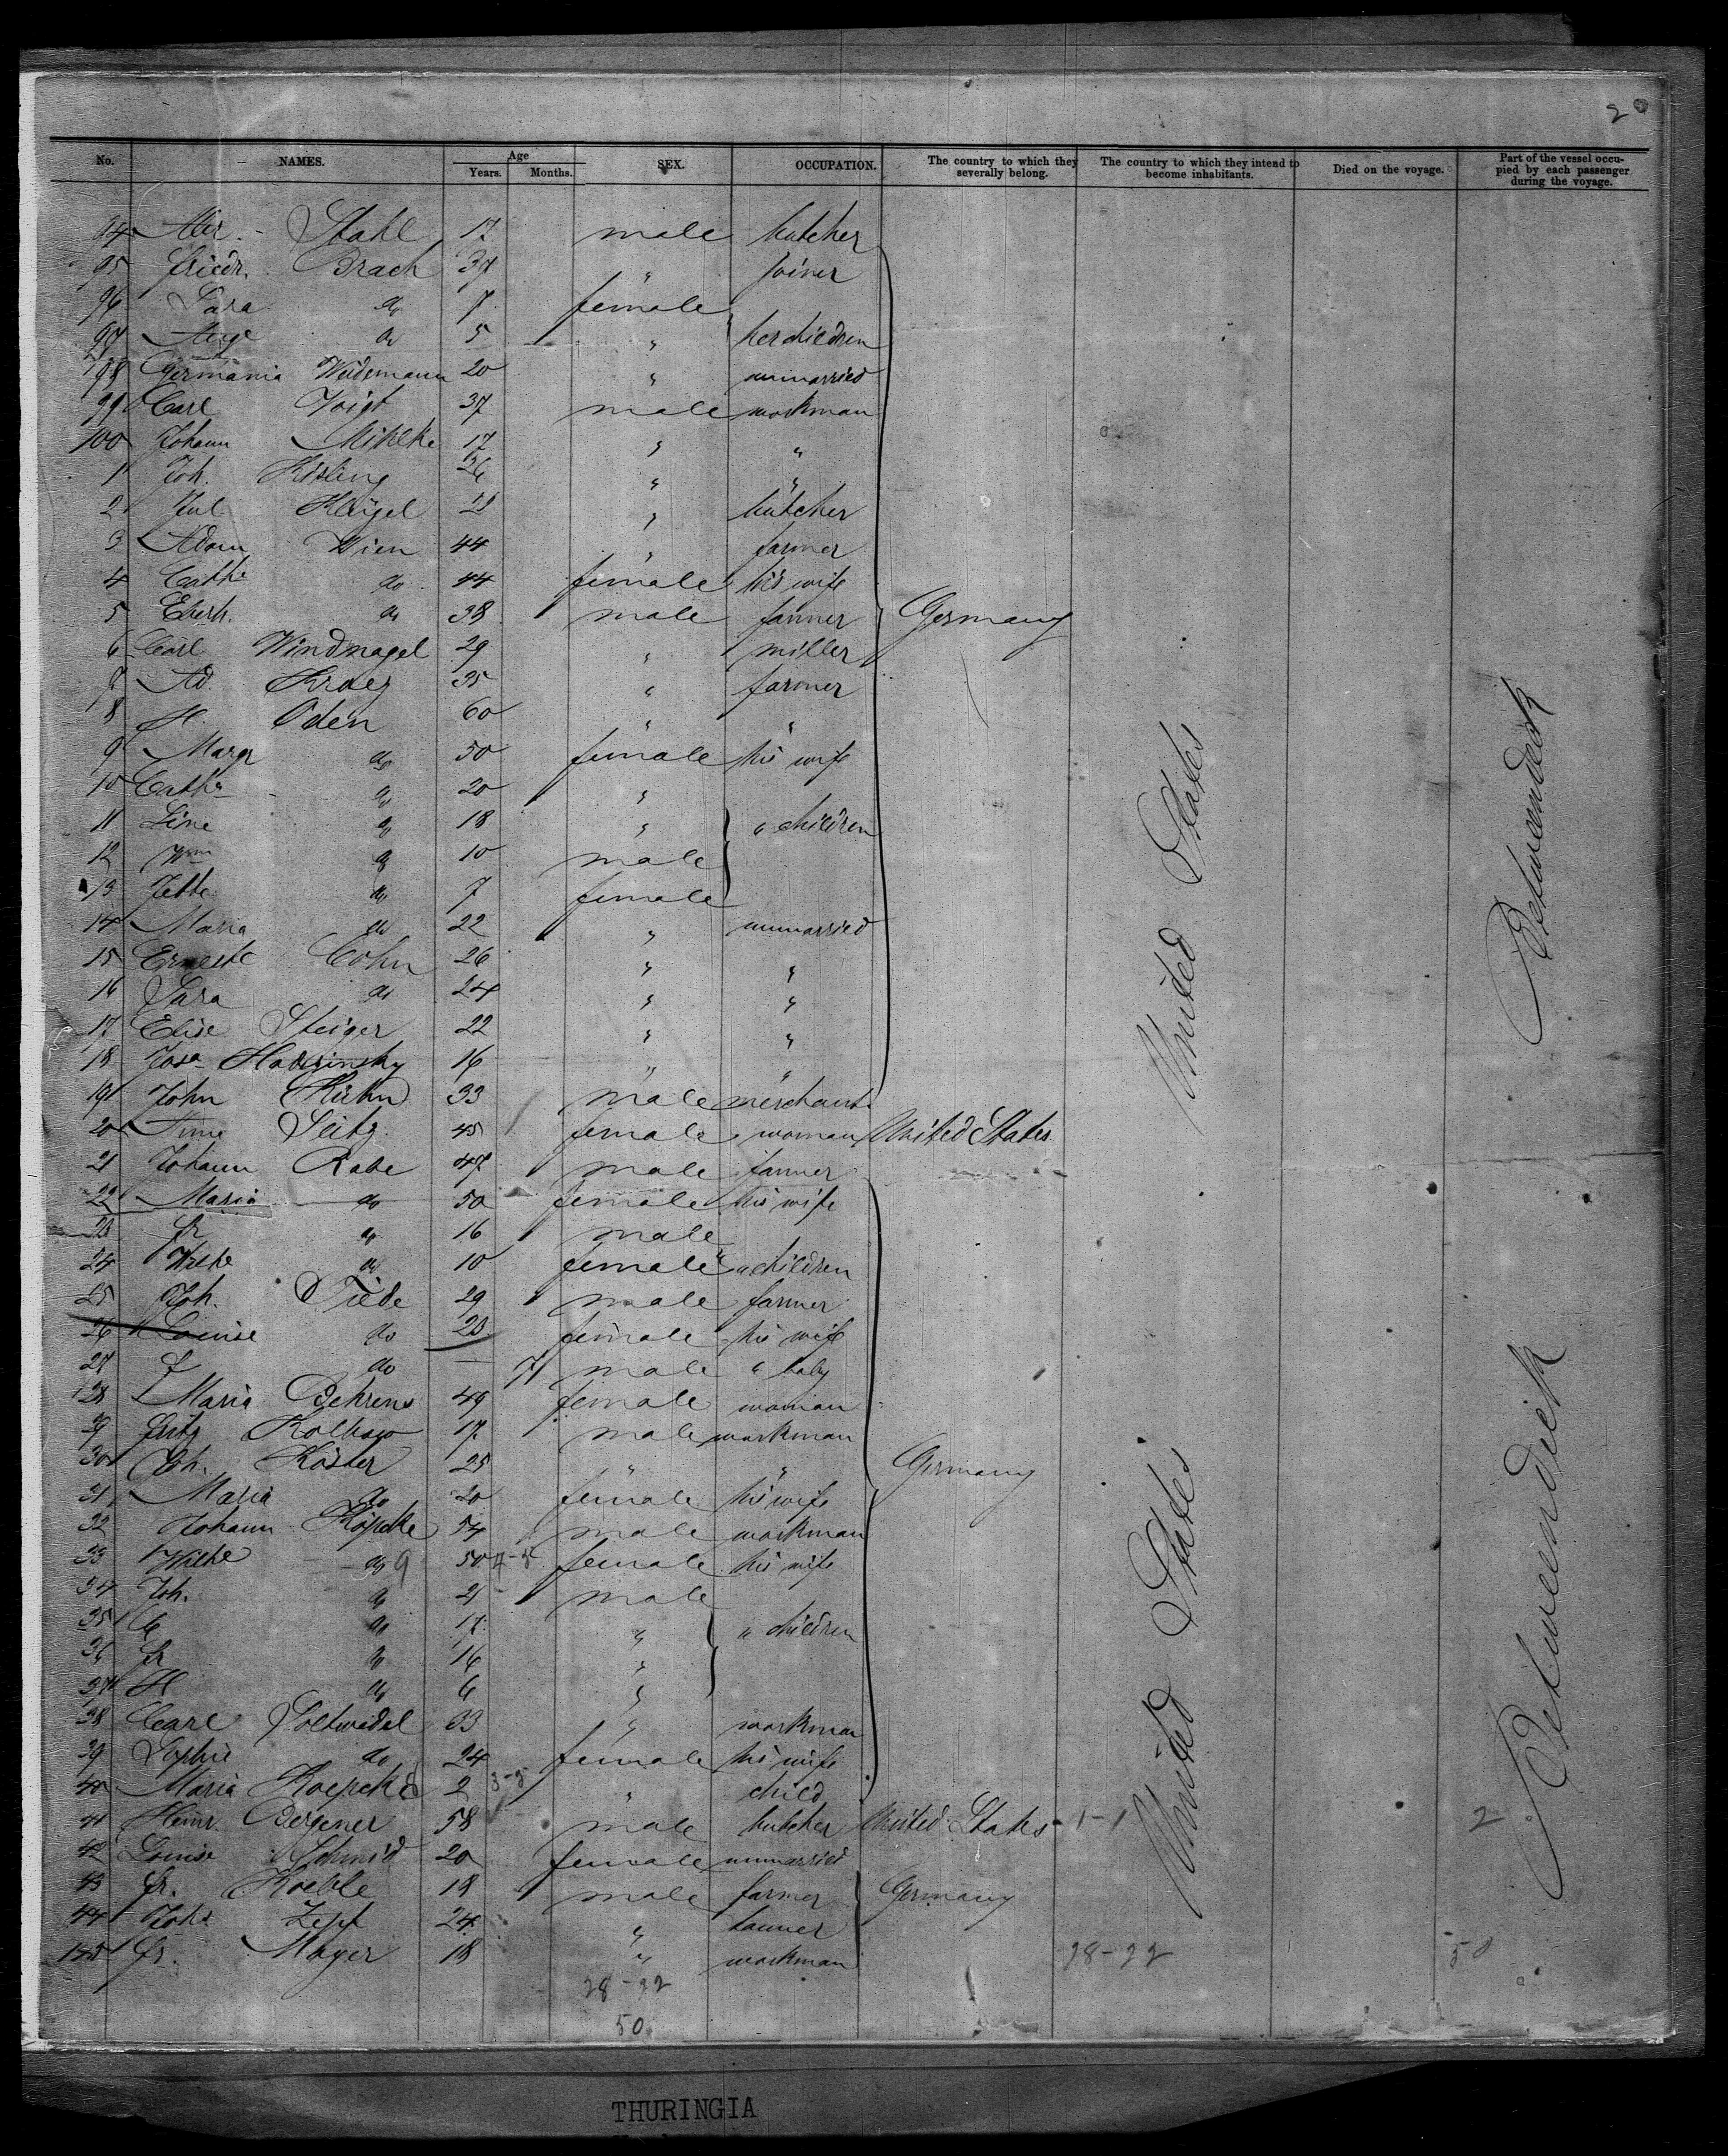 20
No. NAMES. Age Years. Months. SEX. OCCUPATION. The country to which they severally belong. The country to which they intend to become inhabitants. Died on the voyage. Part of the vessel occupied by each passenger during the voyage.
94 Stahl 17 male butcher
95 Friedr. Brach 37 " joiner
96 Sara do 7 female
97 do 5 " her children
98 Germania Weidemann 20 " unmarried
99 Carl Voigt 37 male workman
100 Johann Mihlke 17 " "
1 Joh. Kisling 26 " "
2 Jul. " butcher
3 Adam Wien 44 " farmer
4 Cathe do 44 female his wife
5 Eberh. do 38 male farmer Germany
6 Carl Windnagel 29 " miller
7 Ad. 35 " farmer
8 H. Oden 60 " "
9 Margr do 50 female his wife
10 Cathe do 20 "
11 Line do 18 " " children
12 Wm do 10 male
13 Jette do 7 female
14 Maria do 22 " unmarried United States Betweendeck
15 Erneste Cohn 26 " "
16 Sara do 24 " "
17 Elise Steiger 22 " "
18 16 " "
19 John Kuhn 33 male merchant
20 Seitz 45 female woman United States
21 Johann Rabe 47 male farmer
22 Maria do 50 female his wife
23 Fr do 16 male
24 Wilhe do 10 female " children
25 Joh. Tiede 29 male farmer
26 Louise do 23 female his wife
27 do 7 male " baby
128 Maria Behrens 49 female woman
29 Fritz 17 male workman
30 Joh. Köster 25 " " Germany
31 Maria do 20 female his wife
32 Johann Köpcke 54 male workman
33 Wilhe do 9 50 female his wife
34 Joh. do 21 male
35 C do 17 " " children
36 Fr do 16 "
37 H do 6 "
38 Carl Soltwedel 33 " workman
39 Sophie do 24 female his wife United States Betweendeck
40 Maria Koepcke 2 " child
41 Heinr. Bergener 58 male butcher United States 1-1 2
42 Louise Schmid 20 female unmarried
43 Fr. Koeble 18 male farmer Germany
44 Johs Zepf 24 " tanner
145 Fr. Mayer 18 " workman 28-22 50
28-22
50
THURINGIA